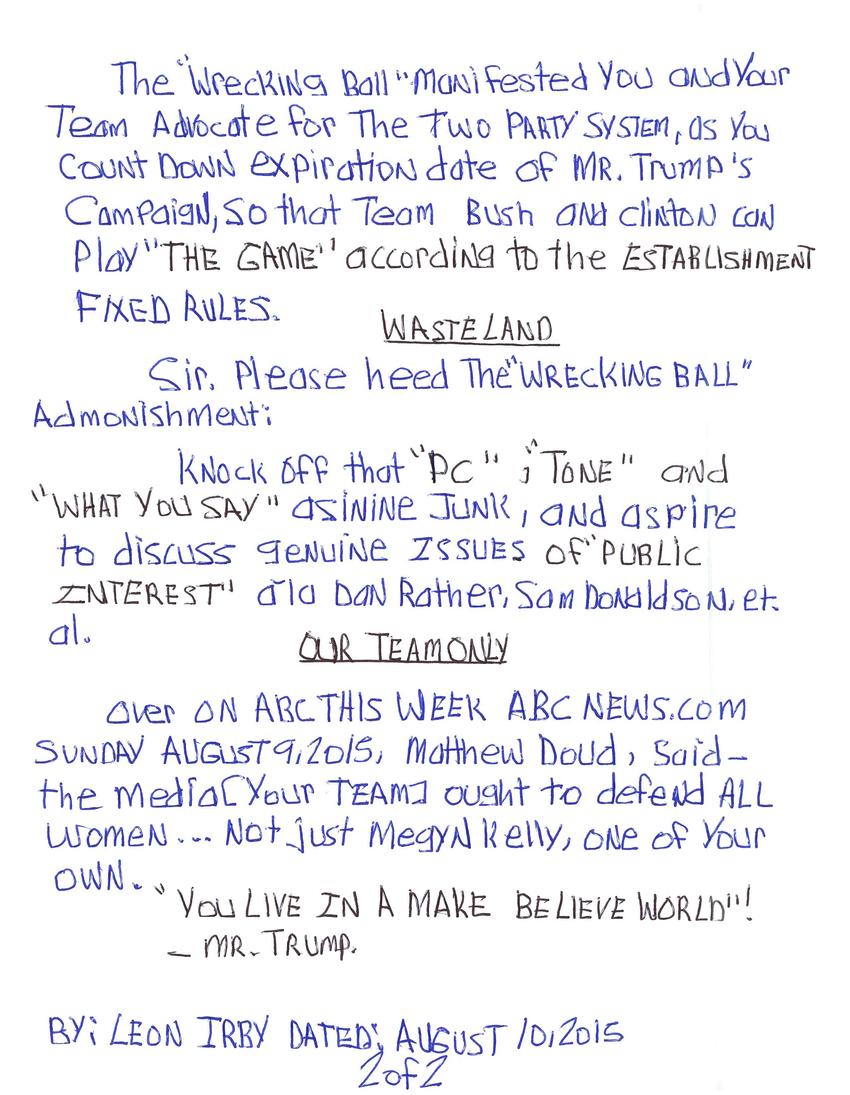 The "Wrecking Ball" Manifested You and Your
Team Advocate for The Two PARTY SYSTEM, as You
COUNT DOWN expiration date of MR. Trump's
Campaign, So that Team Bush and Clinton can
Play "THE GAME" according to the ESTABLISHMENT
FIXED RULES.
WASTELAND
Sir. Please heed The "WRECKING BALL"
Admonishment:
Knock off that "PC" ; "TONE" and
"WHAT YOU SAY" asinine JUNK, and aspire
to discuss genuine ISSUES of "PUBLIC
INTEREST" a'la Dan Rather, Sam Donaldson, et.
al.
OUR TEAM ONLY
Over ON ABC THIS WEEK ABC NEWS.com
SUNDAY AUGUST 9, 2015, Matthew Doud, Said-
the media [Your TEAM] ought to defend ALL
women... Not just Megyn Kelly, one of Your
own.
"YOU LIVE IN A MAKE BELIEVE WORLD"!
- MR. TRUMP.
BY: LEON IRBY DATED: AUGUST 10, 2015
2 of 2